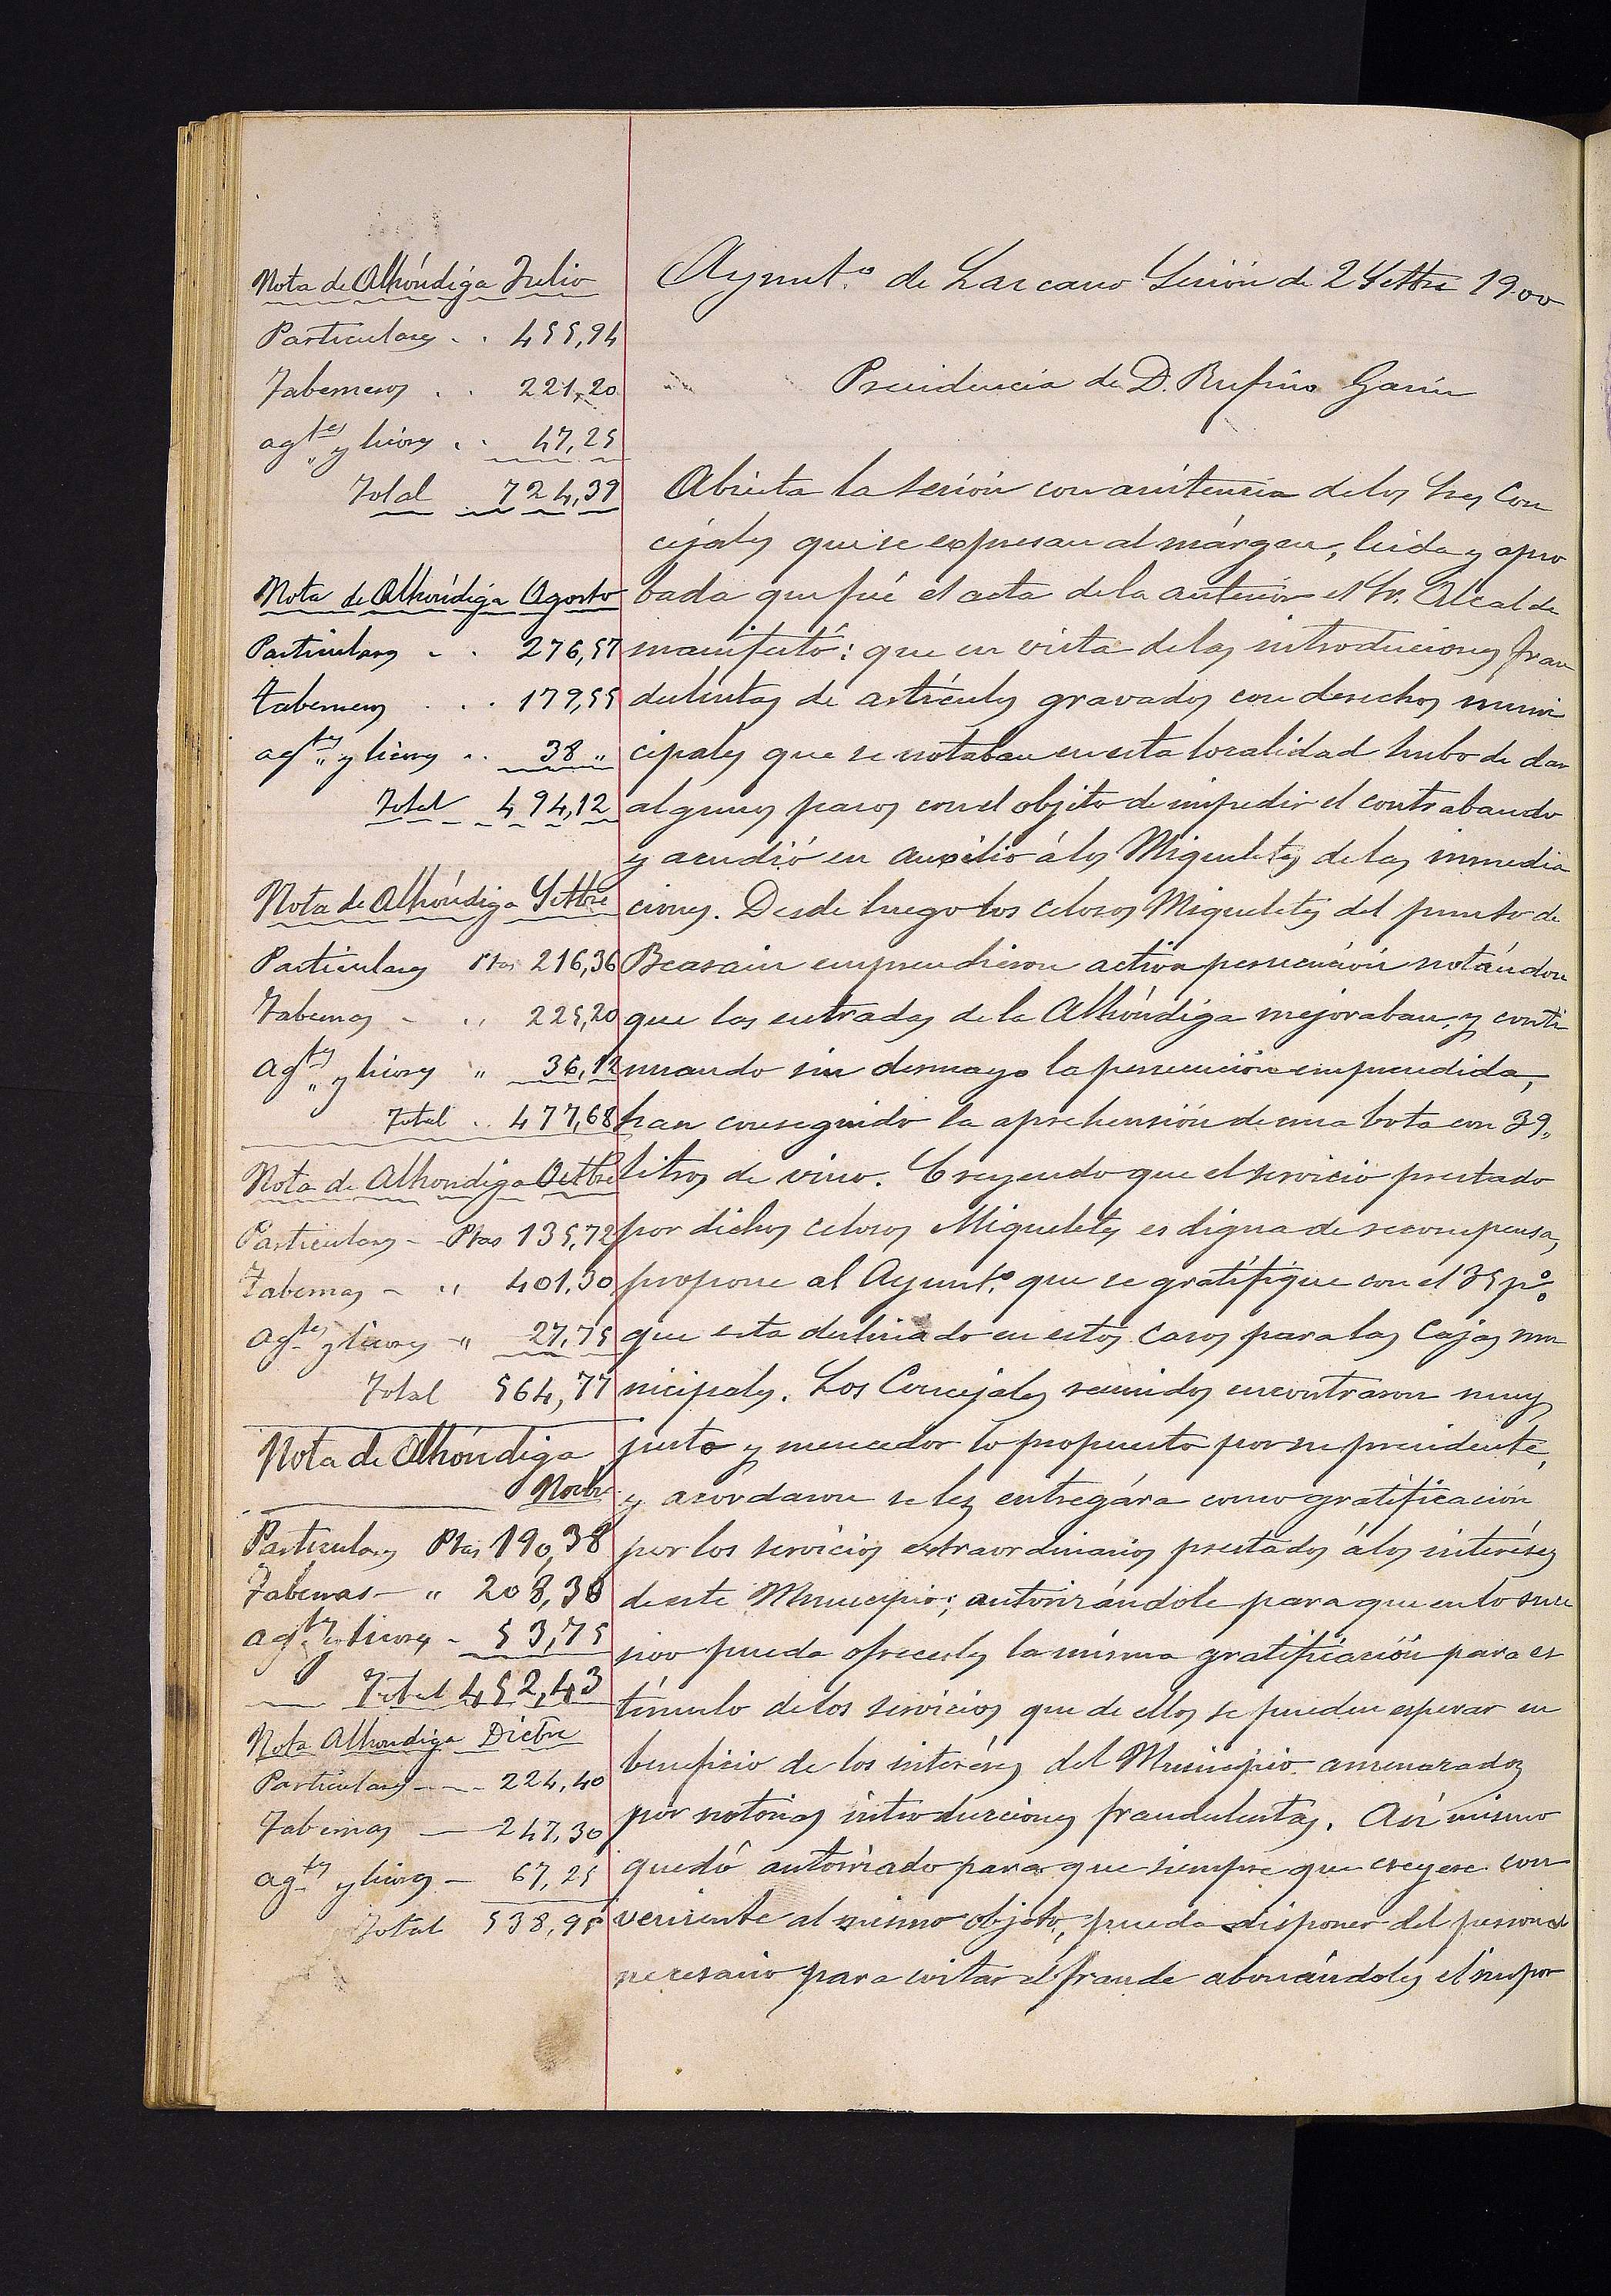 Nota de Alhóndiga Julio
Particulares . . 455,94
Taberneros . . 221,20
agtes y licores . . 47,25
Total 724,39
Nota de Alhóndiga Agosto
Particulares . . 276,57
Taberneros . . . 179,55
agtes y licores . . 38 "
Total 494,12
Nota de Alhóndiga Settbre
Particulares Ptas 216,36
Tabernas - " 225,20
Agtes y licores " 36,12
Total . . 477,68
Nota de Alhondiga Octtbre
Particulares - Ptas 135,72
Tabernas - " 401,30
Agtes y licores " 27,75
Total 564,77
Nota de Alhóndiga
Novbre
Particulares Ptas 190,38
Tabernas - " 208,30
agtes y licores - 53,75
Total 452,43
Nota Alhondiga Dicbre
Particulares - - - 224,40
Tabernas — 247,30
agtes y licores — 67,25
Total 538,95
Ayunt.º de Lazcano Sesión de 2 Settbre 1900
Presidencia de D. Rufino Garin
Abierta la sesión con asistencia de los Sres Con
cejales que se expresan al márgen, leida y apro
bada que fué el acta de la anterior el Sr. Alcalde
manifestó: que en vista de las introduciones frau
dulentas de artículos gravados con derechos muni
cipales que se notaban en esta localidad hubo de dar
algunos pasos con el objeto de impedir el contrabando
y acudió en auxilio á los Miqueletes de las inmedia
ciones. Desde luego los celosos Miqueletes del punto de
Beasain emprendieron activa persecución notándose
que las entradas de la Alhóndiga mejoraban, y conti
nuando sin desmayo la persecución emprendida,
han conseguido la aprehensión de una bota con 39,
litros de vino. Creyendo que el servicio prestado
por dichos celosos Miqueletes es digna de recompensa,
propone al Ayunt.º que se gratifique con el 35 pº/o
que esta destinado en estos casos para las Cajas mu
nicipales. Los Concejales reunidos encontraron muy
justo y merecedor lo propuesto por su presidente,
y acordaron se les entregára como gratificación
por los servicios extraordinarios prestados á los interéses
de este Municipio; autorizándole para que en lo suce
sivo pueda ofrecerles la misma gratificación para es
tímulo de los servicios que de ellos se pueden esperar en
beneficio de los interéses del Municipio amenazados
por notorias introduciones fraudulentas. Asi mismo
quedó autorizado para que siempre que creyese con
veniente al mismo objeto, pueda disponer del personal
necesario para evitar el fraude abonándoles el impor